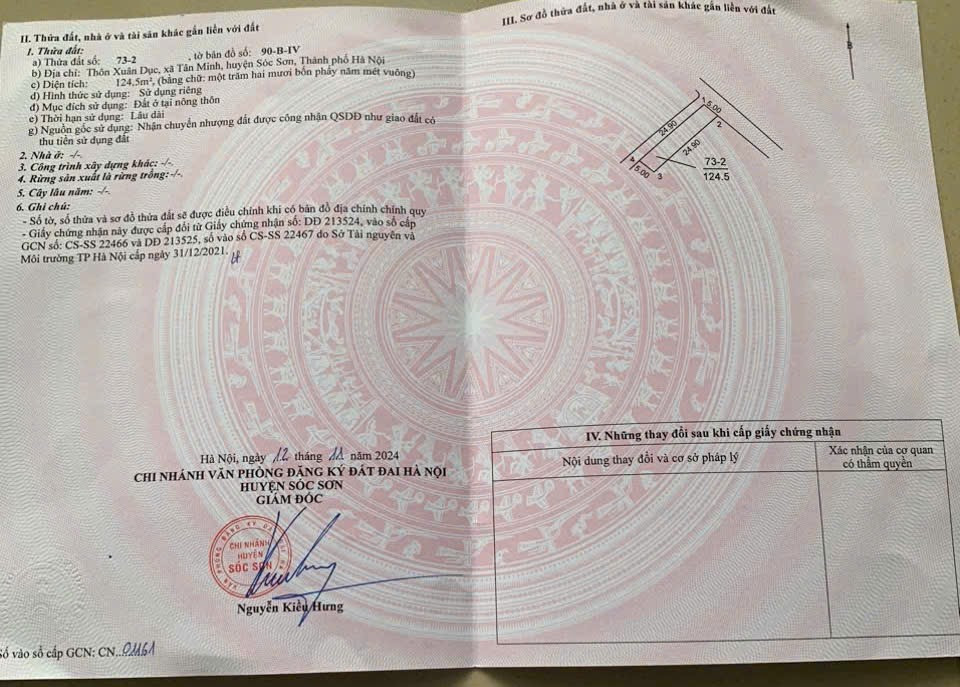 II. Thửa đất, nhà ở và tài sản khác gắn liền với đất
1. Thửa đất:
a) Thửa đất số: 73-2 , tờ bản đồ số: 90-B-IV
b) Địa chỉ: Thôn Xuân Dục, xã Tân Minh, huyện Sóc Sơn, Thành phố Hà Nội
c) Diện tích: 124,5m², (bằng chữ: một trăm hai mươi bốn phẩy năm mét vuông)
d) Hình thức sử dụng: Sử dụng riêng
đ) Mục đích sử dụng: Đất ở tại nông thôn
e) Thời hạn sử dụng: Lâu dài
g) Nguồn gốc sử dụng: Nhận chuyển nhượng đất được công nhận QSDĐ như giao đất có
thu tiền sử dụng đất
2. Nhà ở: -/-.
3. Công trình xây dựng khác: -/-.
4. Rừng sản xuất là rừng trồng:-/-.
5. Cây lâu năm: -/-.
6. Ghi chú:
- Số tờ, số thửa và sơ đồ thửa đất sẽ được điều chỉnh khi có bản đồ địa chính chính quy
- Giấy chứng nhận này được cấp đổi từ Giấy chứng nhận số: DĐ 213524, vào sổ cấp
GCN số: CS-SS 22466 và DĐ 213525, số vào sổ CS-SS 22467 do Sở Tài nguyên và
Môi trường TP Hà Nội cấp ngày 31/12/2021.
Hà Nội, ngày 12 tháng 11 năm 2024
CHI NHÁNH VĂN PHÒNG ĐĂNG KÝ ĐẤT ĐAI HÀ NỘI
HUYỆN SÓC SƠN
GIÁM ĐỐC
CHI NHÁNH
HUYỆN
SÓC SƠN
Nguyễn Kiều Hưng
Số vào sổ cấp GCN: CN..01161
III. Sơ đồ thửa đất, nhà ở và tài sản khác gắn liền với đất
B
1
5.00
2
24.90
24.90
4
5.00
3
73-2
124.5
IV. Những thay đổi sau khi cấp giấy chứng nhận
Nội dung thay đổi và cơ sở pháp lý
Xác nhận của cơ quan
có thẩm quyền